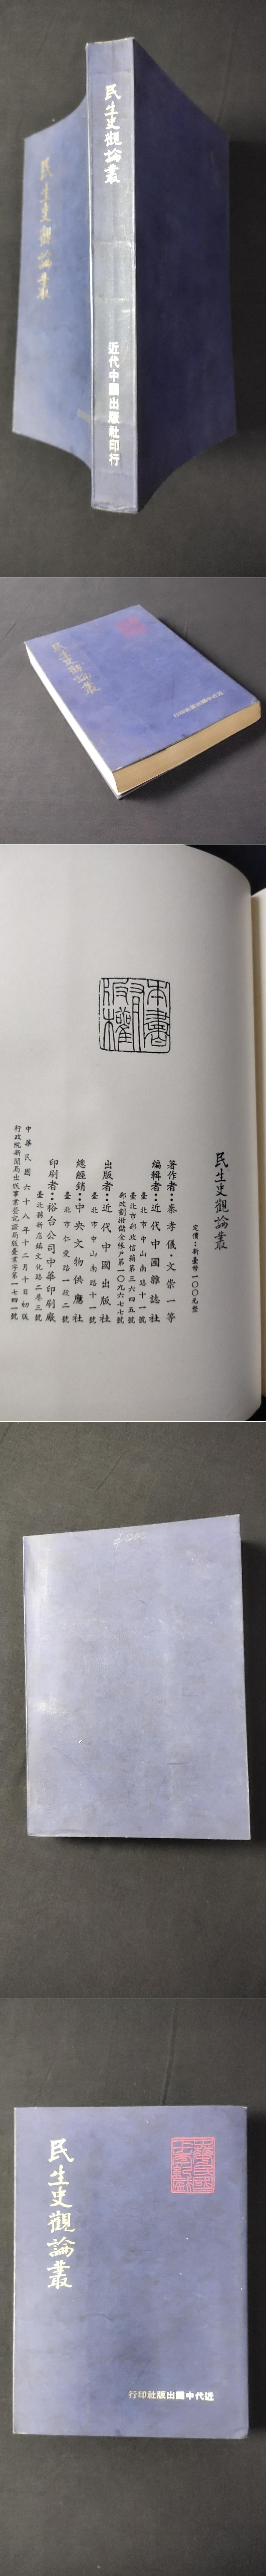 民生史觀論叢
民生史觀論叢
近代中國出版社印行
民生史觀論叢
近代中國出版社印行
本書
版權
民生史觀論叢
定價：新臺幣一〇〇元整
著作者：秦孝儀・文崇一等
編輯者：近代中國雜誌社
臺北市中山南路十一號
臺北市郵政信箱第三六四五號
郵政劃撥儲金帳戶第一〇九六七七號
出版者：近代中國出版社
臺北市中山南路十一號
總經銷：中央文物供應社
臺北市仁愛路一段二號
印刷者：裕台公司中華印刷廠
臺北縣新店鎮文化路二巷三號
中華民國六十八年十二月十日初版
行政院新聞局出版事業登記證局版臺業字第一七四一號
民生史觀論叢
近代中國出版社印行